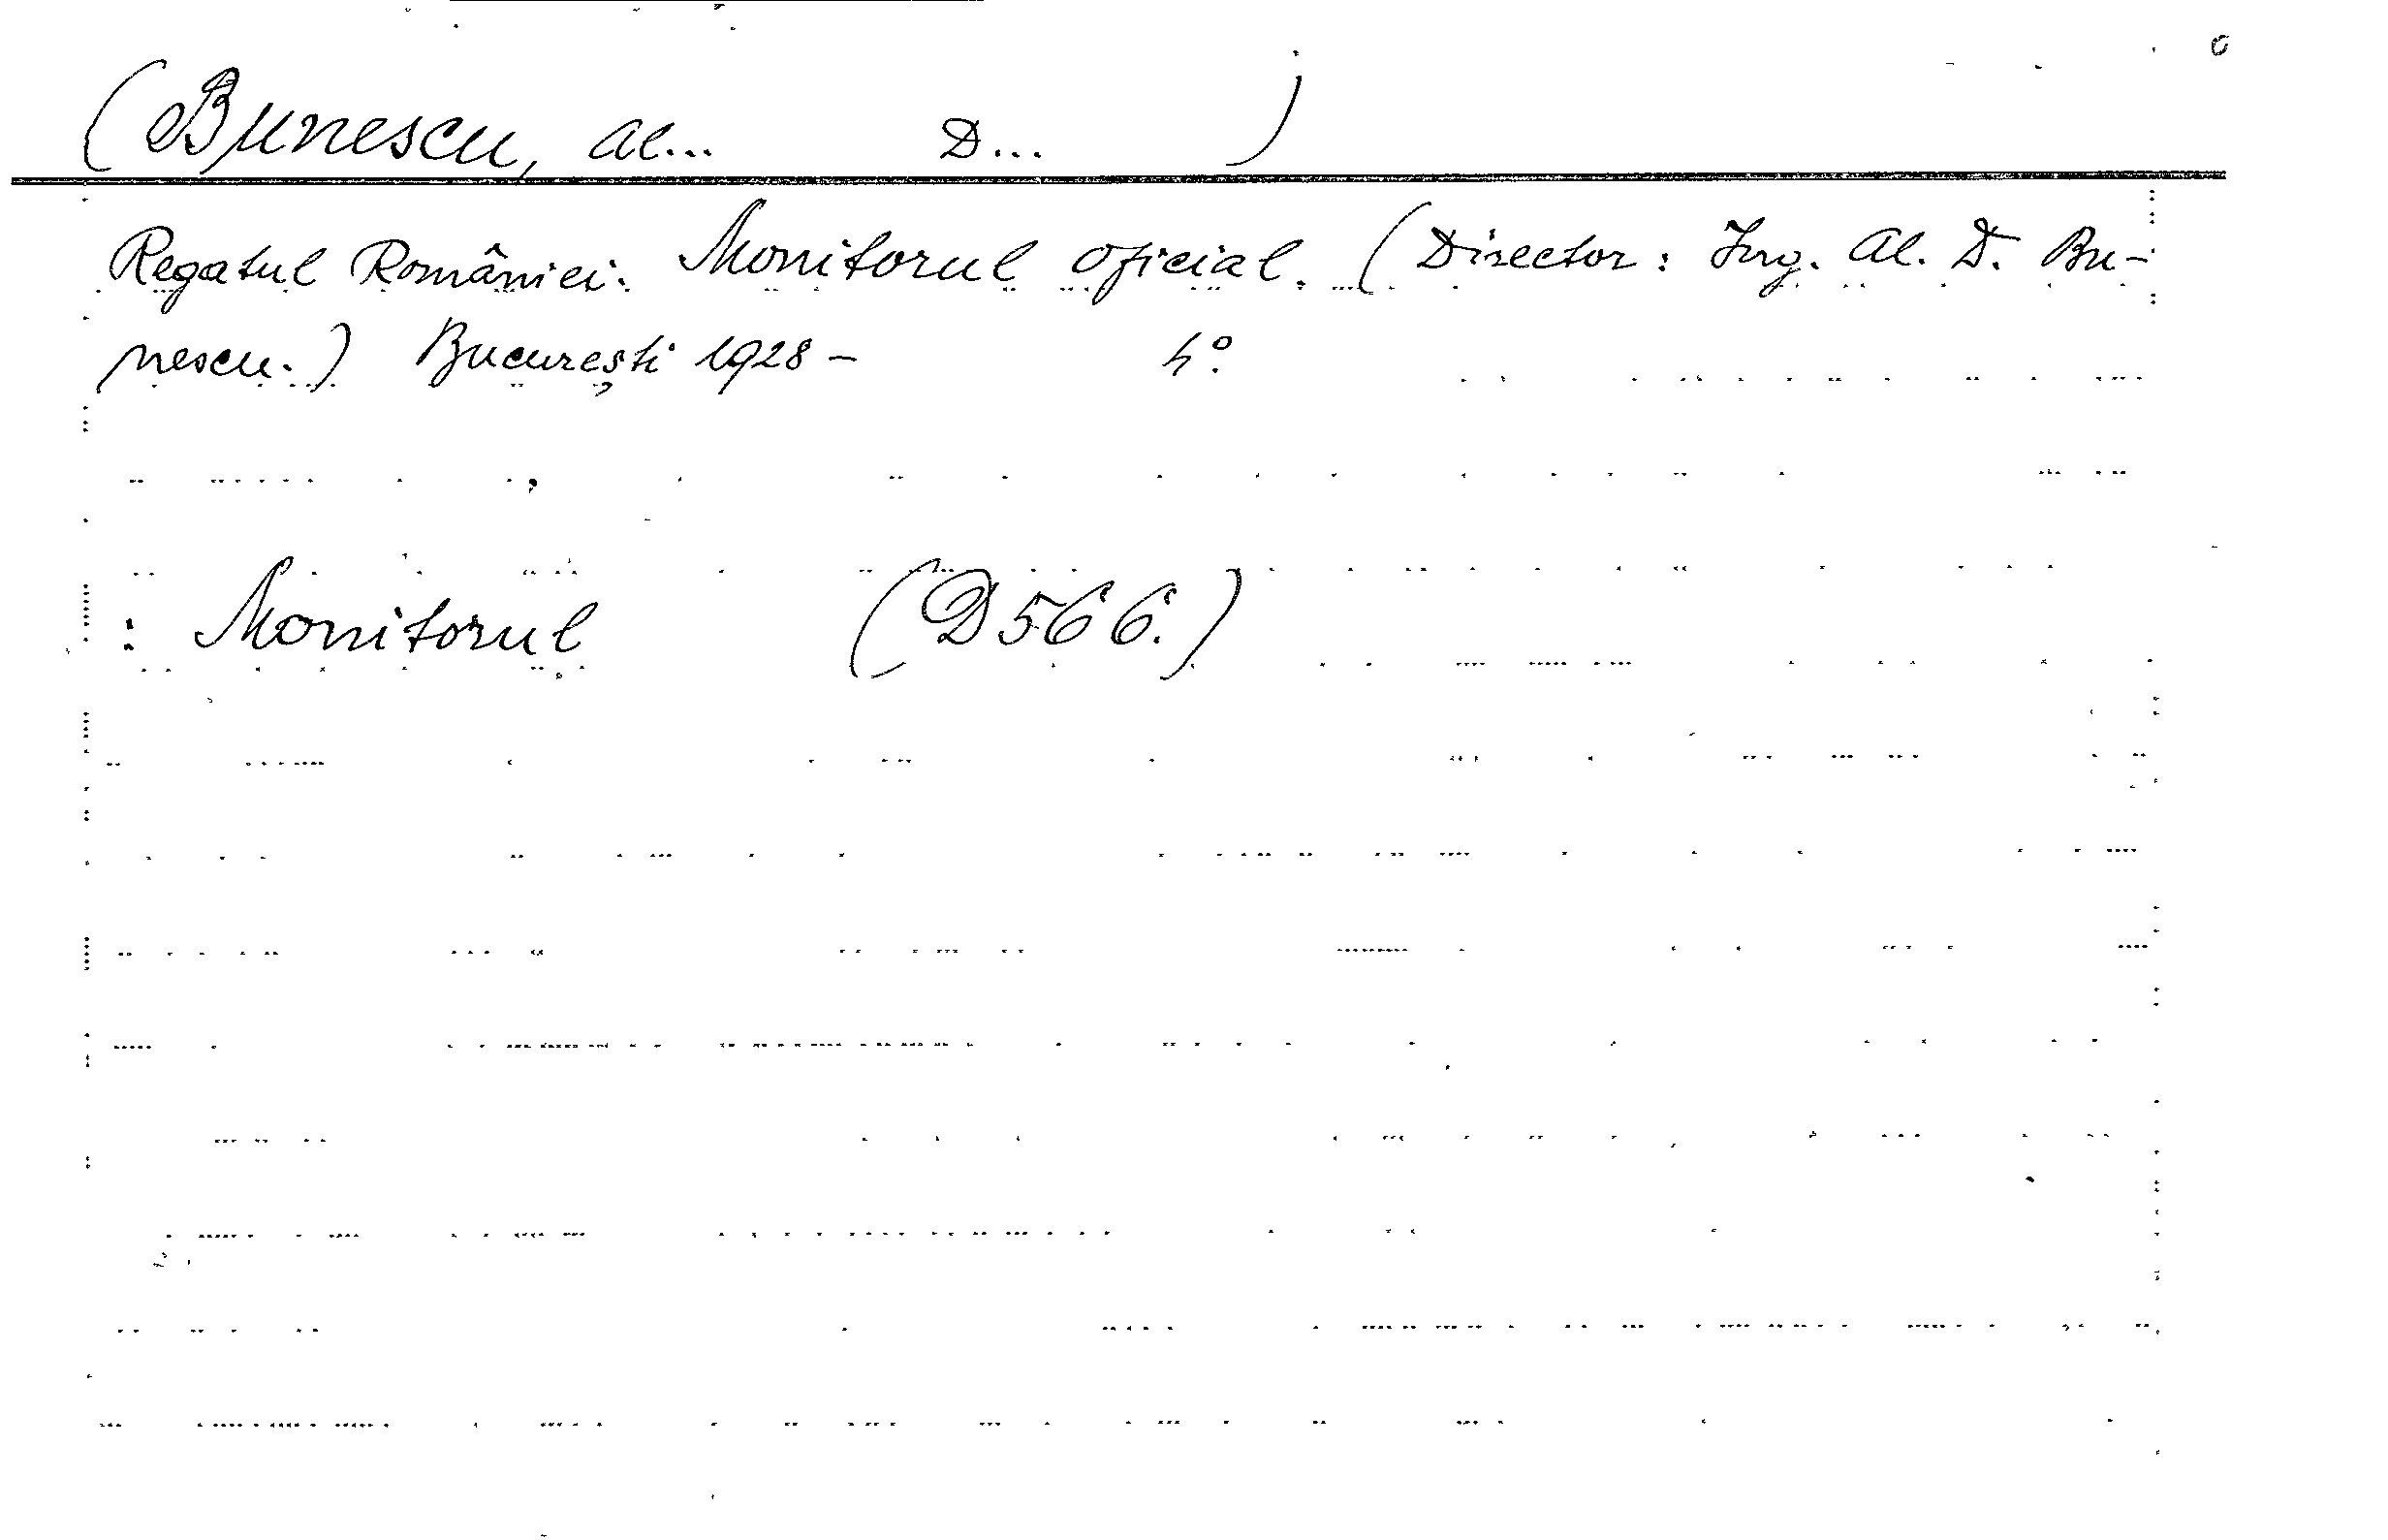 (Bunescu, Al... D... )
Regatul României. Monitorul oficial. (Director: Ing. Al. D. Bu-
nescu.) București 1928 - 4°.
: Monitorul (D 566.)